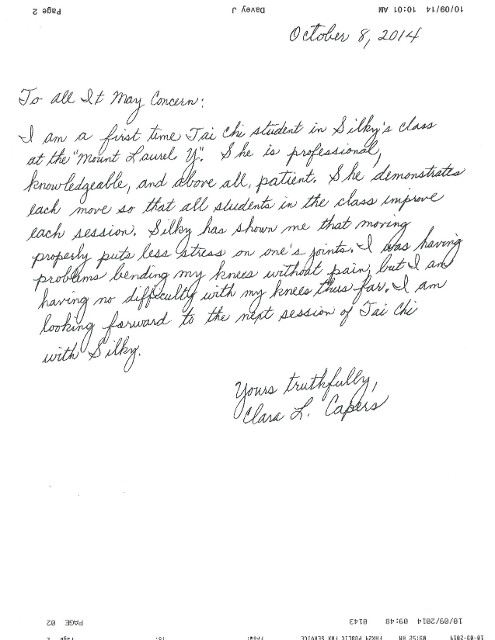 10/09/14 10:01 AM Davey J Page 2
October 8, 2014
To All It May Concern:
I am a first time Tai Chi student in Silky's class
at the "Mount Laurel Y". She is professional,
knowledgeable, and above all, patient. She demonstrates
each move so that all students in the class improve
each session. Silky has shown me that moving
properly puts less stress on one's joints. I was having
problems bending my knees without pain, but I am
having no difficulty with my knees thus far. I am
looking forward to the next session of Tai Chi
with Silky.
Yours truthfully,
Clara L. Capers
10/09/2014 09:48 0143 PAGE 02